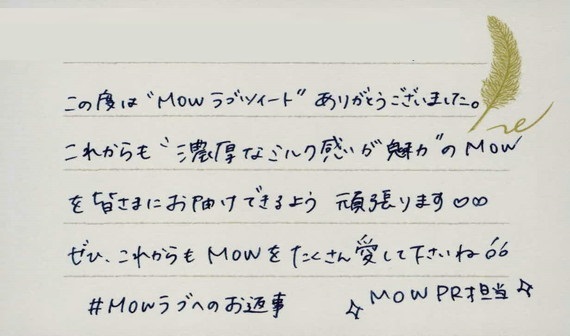 この度は“MOWラブツイート”ありがとうございました。
これからも“濃厚なミルク感いが魅力”のMOW
を皆さまにお届けできるよう 頑張ります♡♡
ぜひ、これからもMOWをたくさん愛して下さいね
#MOWラブへのお返事
☆MOW PR担当☆